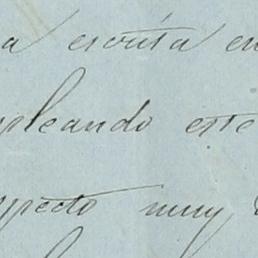 a escrita en
pleando este
specto muy